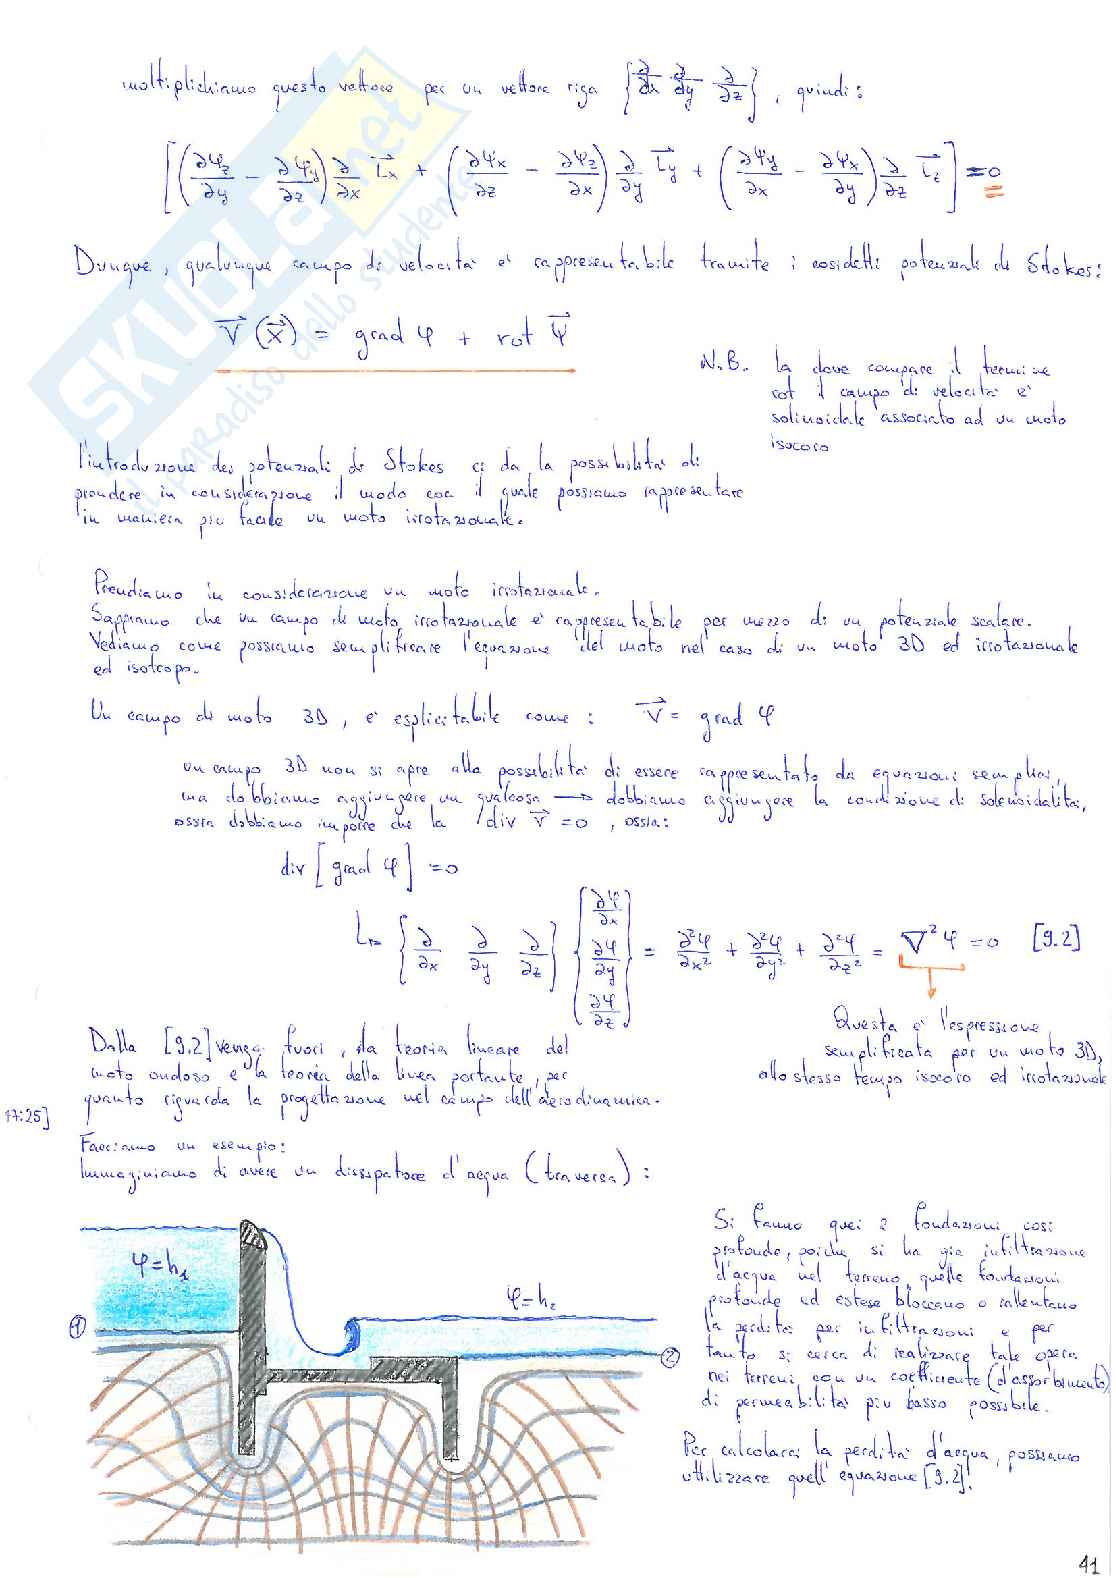 moltiplichiamo questo vettore per un vettore riga {∂/∂x ∂/∂y ∂/∂z}, quindi:
[(∂Ψz/∂y − ∂Ψy/∂z) ∂/∂x ix + (∂Ψx/∂z − ∂Ψz/∂x) ∂/∂y iy + (∂Ψy/∂x − ∂Ψx/∂y) ∂/∂z iz] = 0
Dunque, qualunque campo di velocità è rappresentabile tramite i cosidetti potenziali di Stokes:
V(x) = grad φ + rot Ψ
N.B. la dove compare il termine
rot il campo di velocità è
solinoidale associato ad un moto
isocoro
l'introduzione dei potenziali di Stokes ci da la possibilità di
prendere in considerazione il modo con il quale possiamo rappresentare
in maniera più facile un moto irrotazionale.
Prendiamo in considerazione un moto irrotazionale.
Sappiamo che un campo di moto irrotazionale è rappresentabile per mezzo di un potenziale scalare.
Vediamo come possiamo semplificare l'equazione del moto nel caso di un moto 3D ed irrotazionale
ed isotropo.
Un campo di moto 3D, è esplicitabile come: V = grad φ
un campo 3D non si apre alla possibilità di essere rappresentato da equazioni semplici,
ma dobbiamo aggiungere un qualcosa → dobbiamo aggiungere la condizione di solenoidalità,
ossia dobbiamo imporre che la div V = 0, ossia:
div [grad φ] = 0
{∂/∂x ∂/∂y ∂/∂z} {∂φ/∂x ∂φ/∂y ∂φ/∂z} = ∂²φ/∂x² + ∂²φ/∂y² + ∂²φ/∂z² = ∇²φ = 0 [9.2]
Questa è l'espressione
semplificata per un moto 3D,
allo stesso tempo isocoro ed irrotazionale
Dalla [9.2] venga fuori, la teoria lineare del
moto ondoso e la teoria della linea portante, per
quanto riguarda la progettazione nel campo dell'aerodinamica.
17:25]
Facciamo un esempio:
Immaginiamo di avere un dissipatore d'acqua (traversa):
φ=h1
φ=h2
1
2
Si fanno quei 2 fondazioni così
profonde, poichè si ha già infiltrazione
d'acqua nel terreno, quelle fondazioni
profonde ed estese bloccano o rallentano
la perdita per infiltrazioni e per
tanto si cerca di realizzare tale opera
nei terreni con un coefficiente (d'assorbimento)
di permeabilità più basso possibile.
Per calcolarci la perdita d'acqua, possiamo
utilizzare quell'equazione [9.2].
41
SKUOLA.net
il paradiso dello studente